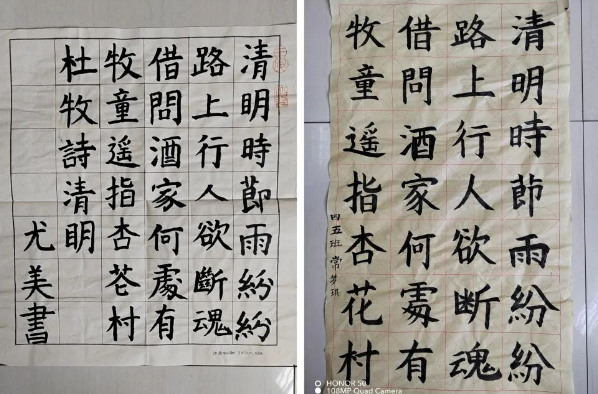 清明時節雨紛紛
路上行人欲斷魂
借問酒家何處有
牧童遥指杏花村
杜牧詩清明
尤美書
清明時節雨紛紛
路上行人欲断魂
借問酒家何處有
牧童遥指杏花村
四五班 常
HONOR 50
108MP Quad Camera